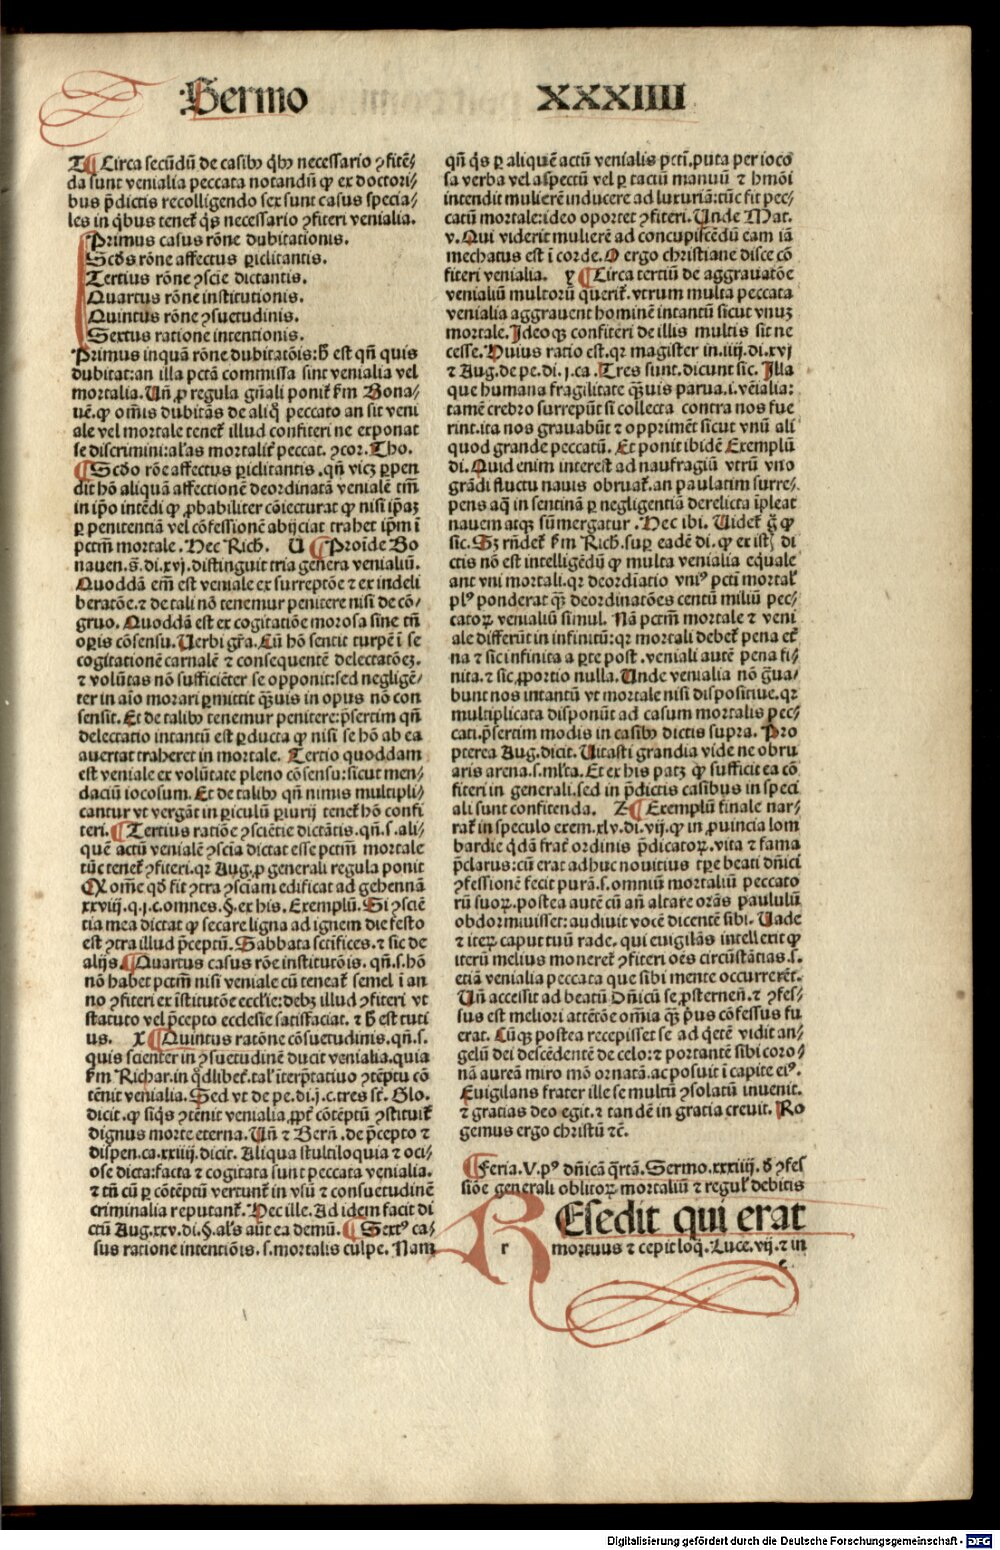 Sermo XXXIIII
T Circa secūdū de casibꝫ q̇bꝫ necessario ꝯfitē-
da sunt venialia peccata notandū ꝙ ex doctori-
bus p̄dictis recolligendo sex sunt casus specia-
les in q̇bus tenet̄ q̇s necessario ꝯfiteri venialia.
Primus casus rōne dubitationis.
Scd̓s rōne affectus ꝑiclitantis.
Tertius rōne ꝯscie dictantis.
Quartus rōne institutionis.
Quintus rōne ꝯsuetudinis.
Sextus ratione intentionis.
Primus inquā rōne dubitatōis: h̄ est qn̄ quis
dubitat: an illa pctā commissa sint venialia vel
mortalia. Un̄ ꝓ regula gn̄ali ponit̄ ẜm Bona-
uē. ꝙ om̄is dubitās de aliq̇ peccato an sit veni
ale vel mortale tenet̄ illud confiteri ne exponat
se discrimini: al̓as mortalit̓ peccat. ꝯcor. Tho.
Scd̓o rōe affectus ꝑiclitantis. qn̄ vicꝫ ꝑpen
dit hō aliquā affectionē deordinatā venialē tm̄
in ip̄o intēdi ꝙ ꝓbabiliter cōiecturat ꝙ nisi ip̄aꝫ
ꝑ penitentiā vel cōfessionē abijciat trahet ip̄m ī
pctm̄ mortale. Hec Rich. U Proīde Bo
nauen. s̄. di. xvj. distinguit tria genera venialiū.
Quoddā em̄ est veniale ex surreptōe ⁊ ex indeli
beratōe. ⁊ de tali nō tenemur penitere nisi de cō-
gruo. Quoddā est ex cogitatiōe morosa sine tn̄
oꝑis cōsensu. Uerbi gr̄a. Cū hō sentit turpē ī se
cogitationē carnalē ⁊ consequentē delectatōeꝫ.
⁊ volūtas nō sufficiēter se opponit: sed negligē-
ter in aīo morari ꝑmittit q̄ꝫuis in opus nō con
sensit. Et de talibꝫ tenemur penitere: p̄sertim qn̄
delectatio intantū est ꝑducta ꝙ nisi se hō ab ea
auertat traheret in mortale. Tertio quoddam
est veniale ex volūtate pleno cōsensu: sicut men-
daciū iocosum. Et de talibꝫ qn̄ nimis multipli-
cantur vt vergāt in ꝑiculū ꝑiurij tenet̄ hō confi
teri. Tertius ratiōe ꝯsciētie dictātis. qn̄. s. ali-
quē actū venialē ꝯscia dictat esse pctm̄ mortale
tūc tenet̄ ꝯfiteri. qr Aug. ꝓ generali regula ponit
Q om̄e qd̓ fit ꝯtra ꝯsciam edificat ad gehennā
xxviij. q. j. c. omnes. §. ex his. Exemplū. Si ꝯsciē
tia mea dictat ꝙ secare ligna ad ignem die festo
est ꝯtra illud p̄ceptū. Sabbata sctifices. ⁊ sic de
alijs. Quartus casus rōe institutōis. qn̄. s. hō
nō habet pctm̄ nisi veniale cū teneat̄ semel ī an
no ꝯfiteri ex īstitutōe eccl̓ie: debꝫ illud ꝯfiteri vt
statuto vel p̄cepto ecclesie satisfaciat. ⁊ h̄ est tuti
us. X Quintus ratōne cōsuetudinis. qn̄. s.
quis scienter in ꝯsuetudinē ducit venialia. quia
ẜm Richar. in q̇dlibet̄. tal̓ īterp̄tatiuo ꝯtēptu cō
tēnit venialia. Sed vt de pe. di. j. c. tres st̄. Glo.
dicit. ꝙ siq̇s ꝯtēnit venialia, ꝓpt̓ cōtēptū ꝯstituit̄
dignus morte eterna. Un̄ ⁊ Bern̄. de p̄cepto ⁊
dispen. ca. xxiiij. dicit. Aliqua stultiloquia ⁊ oci-
ose dicta: facta ⁊ cogitata sunt peccata venialia.
⁊ tn̄ cū ꝑ cōtēptū vertunt̄ in vsū ⁊ consuetudinē
criminalia reputant̄. Hec ille. Ad idem facit di
ctū Aug. xxv. di. §. al̓s aūt ea demū. Sextꝰ ca-
sus ratione intentiōis. s. mortalis culpe. Nam
qn̄ q̇s ꝑ aliquē actū venialis pcti. puta per ioco
sa verba vel aspectū vel ꝑ tactū manuū ⁊ hmōi
intendit mulierē inducere ad luxuriā: tūc fit pec-
catū mortale: ideo oportet ꝯfiteri. Unde Mat.
v. Qui viderit mulierē ad concupiscēdū eam iā
mechatus est ī corde. O ergo christiane disce cō
fiteri venialia. y Circa tertiū de aggrauatōe
venialiū multorū querit̄. vtrum multa peccata
venialia aggrauent hominē intantū sicut vnuꝫ
mortale. Ideoqꝫ confiteri de illis multis sit ne
cesse. Huius ratio est. qr magister in. iiij. di. xvj
⁊ Aug. de pe. di. j. ca. Tres sunt. dicunt sic. Illa
que humana fragilitate q̄ꝫuis parua. i. vēialia:
tamē crebro surrepūt si collecta contra nos fue
rint. ita nos grauabūt ⁊ opprimēt sicut vnū ali
quod grande peccatū. Et ponit ibidē Exemplū
di. Quid enim interest ad naufragiū vtrū vno
grādi fluctu nauis obruat̄. an paulatim surre-
pens aq̄ in sentinā ꝑ negligentiā derelicta īpleat
nauem atqꝫ sūmergatur. Hec ibi. Uidet̄ g̊ ꝙ
sic. Sꝫ rn̄det̄ ẜm Rich. suꝑ eadē di. ꝙ ex istꝭ di
ctis nō est intelligēdū ꝙ multa venialia eq̇uale
ant vni mortali. qr deordiatio vniꝰ pcti mortal̓
plꝰ ponderat q̄ꝫ deordinatōes centū miliū pec-
catoꝝ venialiū simul. Nā pctm̄ mortale ⁊ veni
ale differūt in infinitū: qr mortali debet̄ pena et̓
na ⁊ sic infinita a ꝑte post. veniali autē pena fi-
nita. ⁊ sic, ꝓportio nulla. Unde venialia nō g̓ua-
bunt nos intantū vt mortale nisi dispositiue. qr
multiplicata disponūt ad casum mortalis pec-
cati. p̄sertim modis in casibꝫ dictis supra. Pro
pterea Aug. dicit. Uitasti grandia vide ne obru
aris arena. s. ml̓ta. Et ex his patꝫ ꝙ sufficit ea cō
fiteri in generali. sed in p̄dictis casibus in speci
ali sunt confitenda. Z Exemplū finale nar-
rat̄ in speculo exem. xlv. di. vij. ꝙ in ꝓuincia lom
bardie q̇dā frat̓ ordinis p̄dicatoꝝ. vita ⁊ fama
p̄clarus: cū erat adhuc nouitius tꝑe beati dn̄ici
ꝯfessionē fecit purā. s. omniū mortaliū peccato
rū suoꝝ. postea autē cū an̄ altare orās paululū
obdormiuisset: audiuit vocē dicentē sibi. Uade
⁊ iteꝝ caput tuū rade. qui euigilās intellexit ꝙ
iterū melius moneret̄ ꝯfiteri oēs circūstātias. s.
etiā venialia peccata que sibi mente occurrerēt.
Un̄ accessit ad beatū Dn̄icū se, ꝓsternen̄. ⁊ ꝯfes-
sus est meliori attētōe om̄ia q̄ꝫ pꝰus cōfessus fu
erat. Cūqꝫ postea recepisset se ad q̇etē vidit an-
gelū dei descēdentē de celo: ⁊ portantē sibi coro-
nā aureā miro mō ornatā. ac posuit ī capite eiꝰ.
Euigilans frater ille se multū ꝯsolatū inuenit.
⁊ gratias deo egit. ⁊ tandē in gratia creuit. Ro
gemus ergo christū ⁊c̄.
Feria. V. pꝰ dn̄icā q̈rtā. Sermo. xxxiiij. d̓ ꝯfes
siōe generali oblitoꝝ mortaliū ⁊ regul̓ debitis
REsedit qui erat
r mortuus ⁊ cepit loq̇. Luce. vij. ⁊ in
c
Digitalisierung gefördert durch die Deutsche Forschungsgemeinschaft - DFG